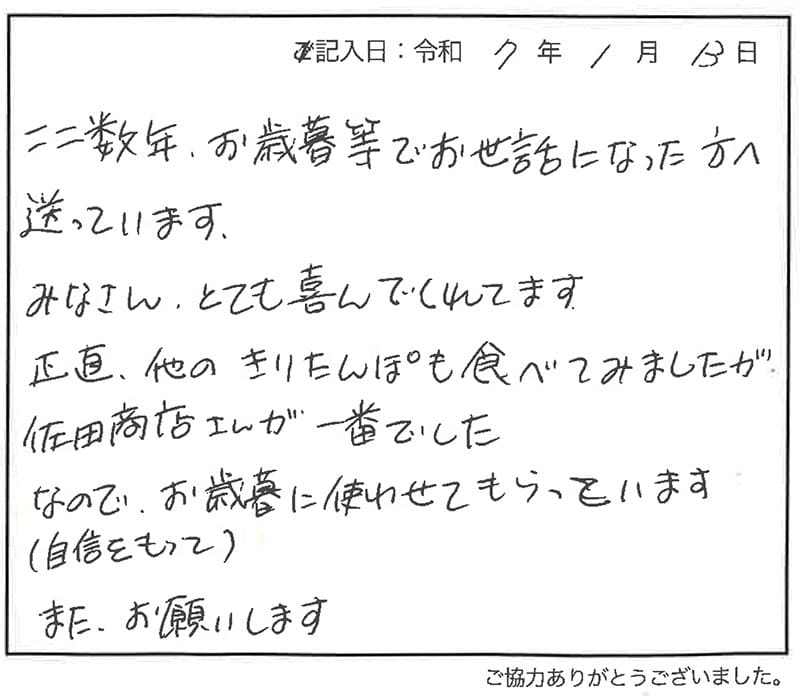 ご記入日：令和 7年 1月 13日
ここ数年、お歳暮等でお世話になった方へ
送っています、
みなさん、とても喜んでくれてます
正直、他の きりたんぽも食べてみましたが、
佐田商店さんが 一番でした
なので、お歳暮に使わせてもらっています
(自信をもって)
また、お願いします
ご協力ありがとうございました。